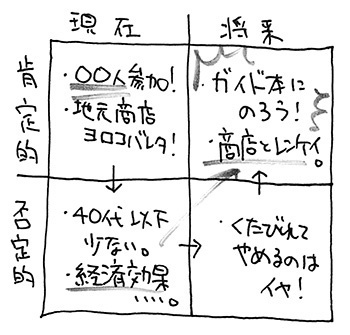 現在
将来
肯定的
・〇〇人参加!
・地元商店
ヨロコバレタ!
・ガイド本に
のろう!
・商店とレンケイ。
否定的
・40代以下
少ない。
・経済効果
・・・・。
・くたびれて
やめるのは
イヤ!